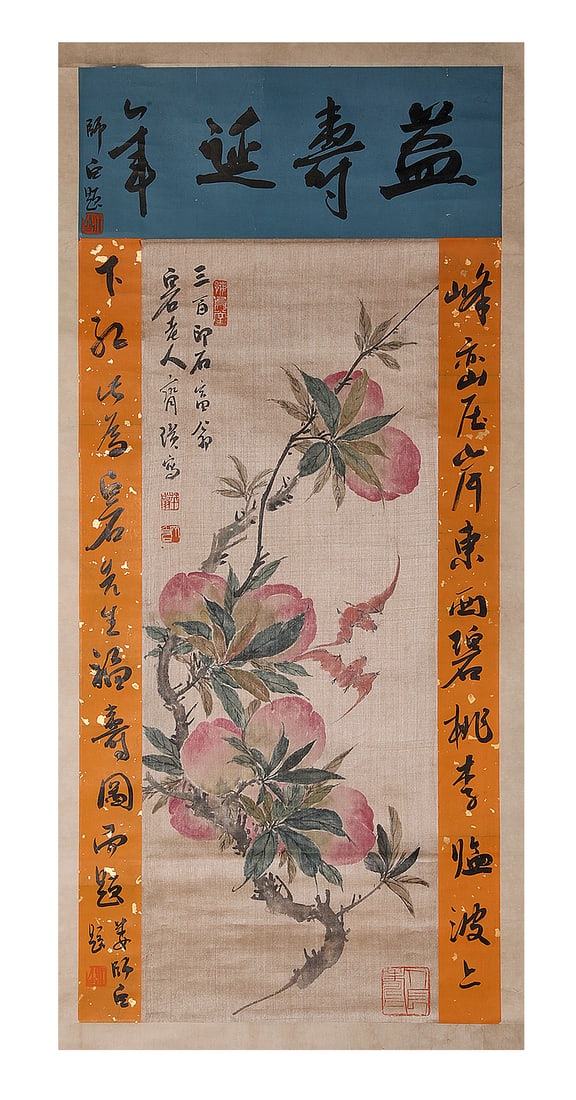 益壽延年
師白題
峰巒压岸東西碧桃李臨波上
下紅此為白石先生福壽圖而題
婁師白題
三百印石富翁
白石老人齊璜寫